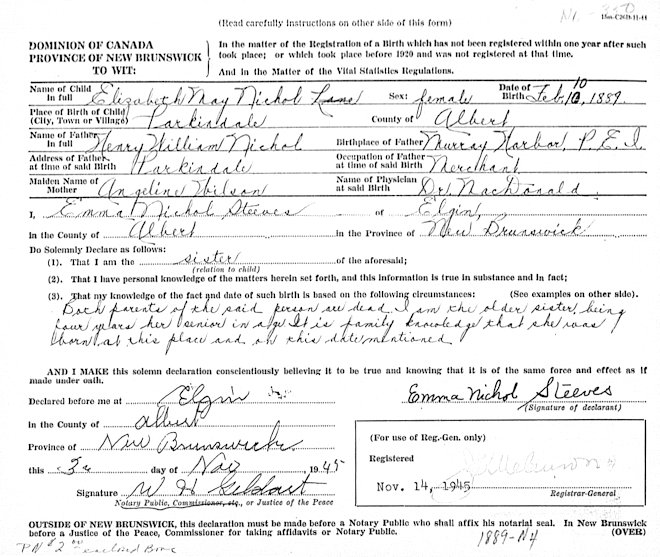 (Read carefully instructions on other side of this form)
DOMINION OF CANADA
PROVINCE OF NEW BRUNSWICK
TO WIT:
In the matter of the Registration of a Birth which has not been registered within one year after such
took place; or which took place before 1920 and was not registered at that time.
And in the Matter of the Vital Statistics Regulations.
Name of Child in full Elizabeth May Nichol Lane Sex: female Date of Birth Feb. 10 1889.
Place of Birth of Child (City, Town or Village) Parkindale County of Albert
Name of Father in full Henry William Nichol Birthplace of Father Murray Harbor, P.E.I.
Address of Father at time of said Birth Parkindale Occupation of Father at time of said Birth Merchant
Maiden Name of Mother Angeline Wilson Name of Physician at said Birth Dr. MacDonald.
I, Emma Nichol Steeves of Elgin,
in the County of Albert in the Province of New Brunswick
Do Solemnly Declare as follows:
(1). That I am the sister of the aforesaid;
(relation to child)
(2). That I have personal knowledge of the matters herein set forth, and this information is true in substance and in fact;
(3). That my knowledge of the fact and date of such birth is based on the following circumstances: (See examples on other side).
Both parents of the said person are dead. I am the older sister being
four years her senior in age. It is family knowledge that she was
born at this place and on this date mentioned
AND I MAKE this solemn declaration conscientiously believing it to be true and knowing that it is of the same force and effect as if
made under oath.
Declared before me at Elgin
in the County of Albert
Province of New Brunswick
this day of Nov 1945
Signature W H Geldart
Notary Public, Commissioner, etc., or Justice of the Peace
Emma Nichol Steeves
(Signature of declarant)
(For use of Reg.-Gen. only)
Registered
Nov. 14, 1945
Registrar-General
OUTSIDE OF NEW BRUNSWICK, this declaration must be made before a Notary Public who shall affix his notarial seal. In New Brunswick
before a Justice of the Peace, Commissioner for taking affidavits or Notary Public.
(OVER)
1889-N4